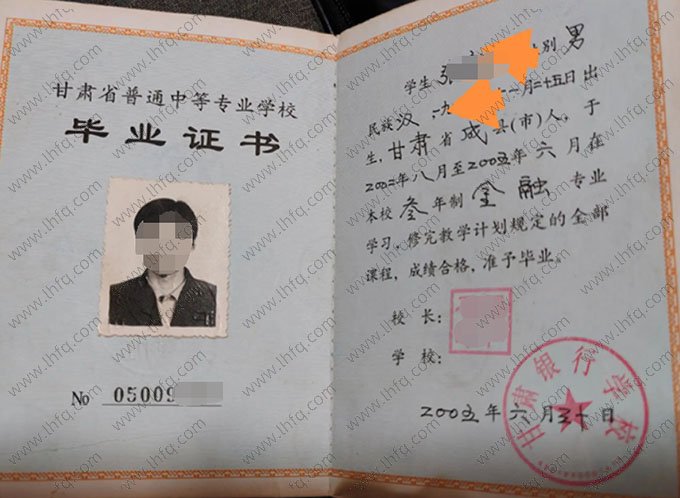 甘肃省普通中等专业学校
毕业证书
№ 05009
学生 张 别 男
民族 汉 一九 一月二十五日出
生,甘肃省成县(市)人,于
2002年八月至2005年六月在
本校 叁 年制 金融 专业
学习,修完教学计划规定的全部
课程,成绩合格,准予毕业。
校 长:
学 校:
甘肃银行学校
2005年六月三十日
www.lhfq.com